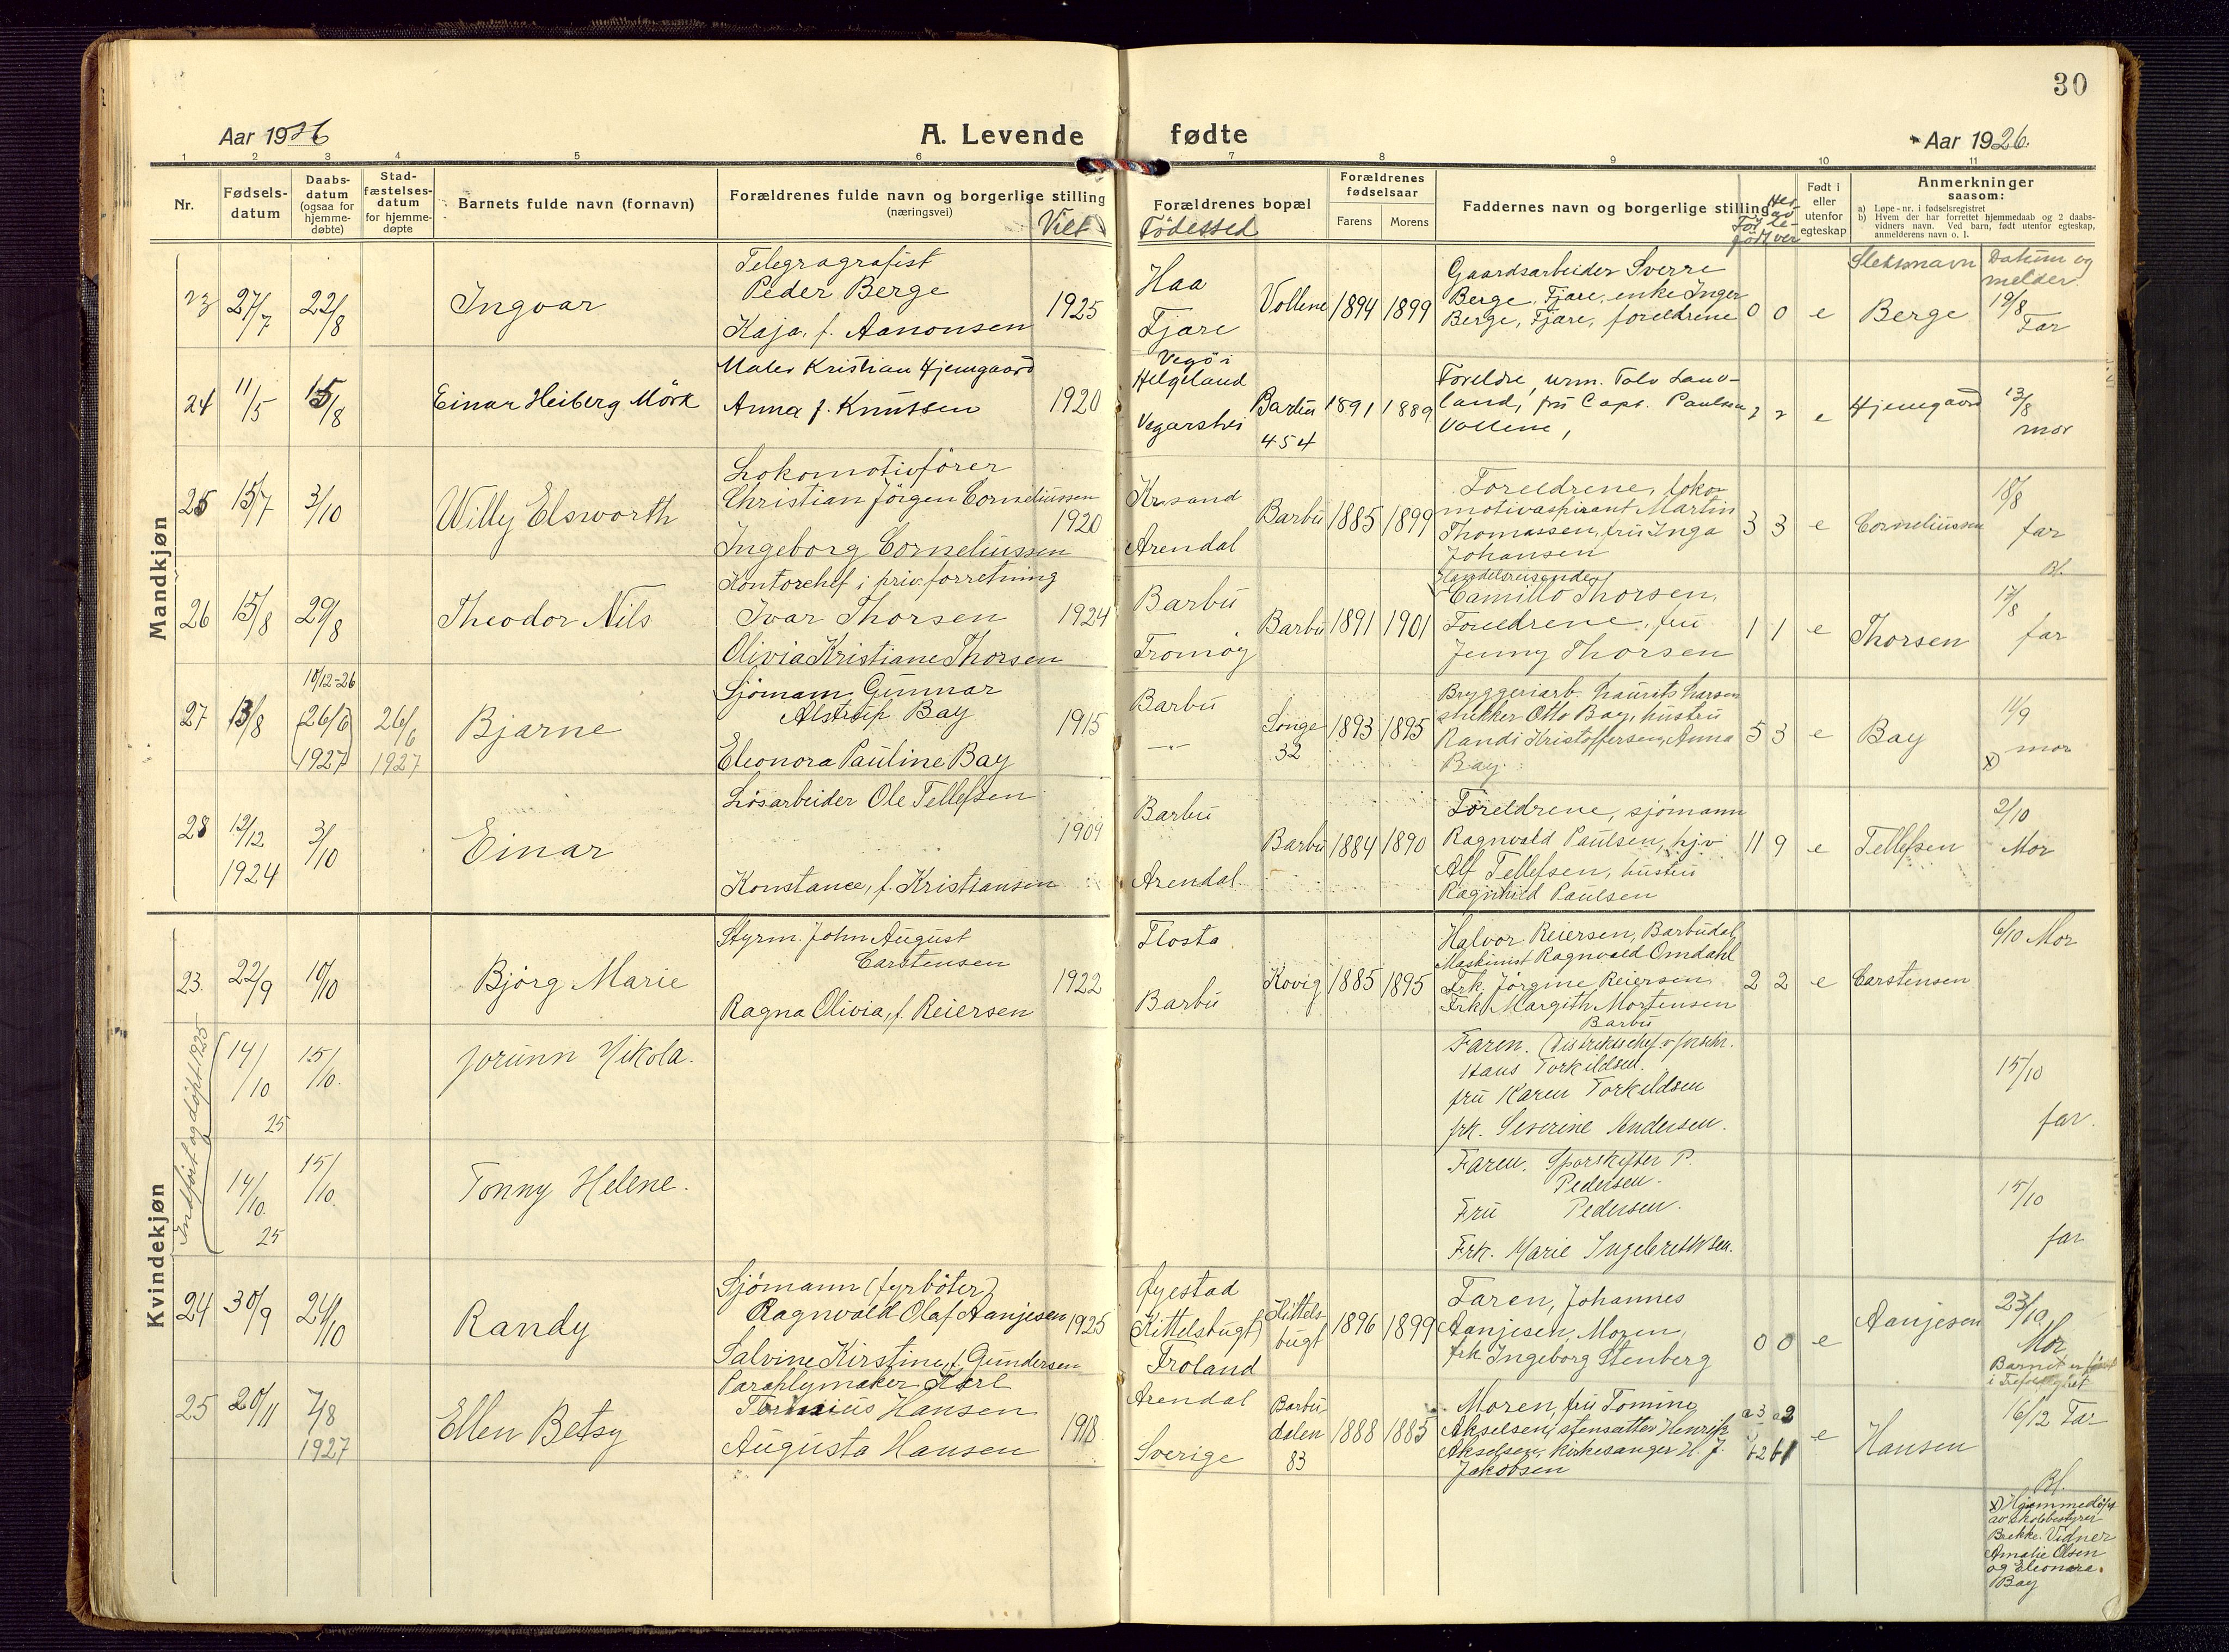 30
Aar 1926
A. Levende fødte
Aar 1926.
1 2 3 4 5 6 7 8 9 10 11
Nr.
Fødsels-
datum
Daabs-
datum
(ogsaa for
hjemme-
døbte)
Stad-
fæstelses-
datum
for hjemme-
døpte
Barnets fulde navn (fornavn)
Forældrenes fulde navn og borgerlige stilling
(næringsvei)
Viet
Forældrenes bopæl
Födessed
Forældrenes
fødselsaar
Farens
Morens
Faddernes navn og borgerlige stilling
Født i
eller
utenfor
egteskap
Anmerkninger
saasom:
a) Løpe-nr. i fødselsregistret
b) Hvem der har forrettet hjemmedaab og 2 daabs-
vidners navn. Ved barn, født utenfor egteskap,
anmelderens navn o. l.
Slektsnavn
Datum og
melder.
Mandkjøn
23 27/7 22/8
Ingvar
Telegragrafist
Peder Berge
Kaja, f. Aanonsen
1925
Haa
Fjære
Vollene
1894 1899
Gaardsarbeider Sverre
Berge, Fjære, enke Inger
Berge, Fjære, foreldrene
0 0 e
Berge
19/8
Far
24 11/5 15/8
Einar Heiberg Mörk
Maler Kristian Hjemgaard
Anna f. Knutsen
1920
Vegö i
Helgeland
Vegarshei
Barbu
454
1891 1889
Foreldre, urm. Tolv Land-
land, fru Capt. Paulsen
Vollene,
2 2 e
Hjemgaard
13/8
mor
25 15/7 3/10
Willy Elsworth
Lokomotivförer
Christian Jörgen Corneliussen
Ingeborg Corneliussen
1920
Kr.sand
Arendal
Barbu
1885 1899
Foreldrene, loko-
motivaspirant Martin
Thomassen, fru Inga
Johansen
3 3 e
Corneliussen
18/8
far
Bl.
26 15/8 29/8
Theodor Nils
Kontorchef i priv.forretning
Ivar Thorsen
Olivia Kristiane Thorsen
1924
Barbu
Tromöy
Barbu
1891 1901
Handelsreisende
Camillo Thorsen,
Foreldrene, fru
Jenny Thorsen
1 1 e
Thorsen
17/8
far
27 13/8
10/12-26
(26/6)
1927
26/6
1927
Bjarne
Sjömann Gunnar
Alstrup Bay
Eleonora Pauline Bay
1915
Barbu
—"—
Songe
32
1893 1895
Bryggeriarb. Laurits Larsen
snekker Otto Bay, hustru
Randi Kristoffersen, Anna
Bay.
5 3 e
Bay
11/9
x) mor
28 12/12
1924
3/10
Einar
Lösarbeider Ole Tellefsen
Konstance, f. Kristiansen
1909
Barbu
Arendal
Barbu
1884 1890
Foreldrene, sjömann
Ragnvald Paulsen, hjv
Alf Tellefsen, hustru
Ragnhild Paulsen
11 9 e
Tellefsen
2/10
Mor
Kvindekjøn
23. 22/9 10/10
Björg Marie
Styrm. John August
Carstensen
Ragna Olivia, f. Reiersen
1922
Flosta
Barbu
Kovig
1885 1895
Halvor Reiersen, Barbudal,
Maskinist Ragnvald Omdahl
Frk. Jörgine Reiersen
Frk. Margith Mortensen
Barbu
2 2 e
Carstensen
6/10 Mor
Indført og døpt 1925
14/10
25
15/10.
Jorunn Nikola.
Faren. Distriktschef v forsikr.
Hans Torkildsen.
fru Karen Torkildsen
frk. Severine Andersen.
15/10
far.
14/10.
25
15/10.
Tonny Helene.
Faren. Sporskifter P.
Pedersen.
Fru Pedersen.
Frk. Marie Ingebrethsen.
15/10
far
24 30/9 24/10
Randy
Sjömann (fyrböter)
Ragnvald Olaf Aanjesen
Salvine Kirstine, f. Gundersen
1925
Øyestad
(Kittelsbugt)
Froland
Kittels-
bugt
1896 1899
Faren, Johannes
Aanjesen, Moren,
frk Ingeborg Stenberg
0 0 e
Aanjesen
23/10.
Mor
Barnet er födt
i Trefoldighet
25 20/11 7/8
1927
Ellen Betsy
Paraplymaker Karl
Hansen
Augusta Hansen
1918.
Arendal
Sverige
Barbu-
dalen
83
1888 1885
Moren, fru Tomine
Akselsen, stensætter Henrik
Akselsen, Kirkesanger H. J.
Jakobsen
a3 a2
b2 b1
e
Hansen
16/12 Far
Bl.
x) Hjemmedöpt
av skolebestyrer
Brekke. Vidner
Amalie Olsen
og Eleonora
Bay